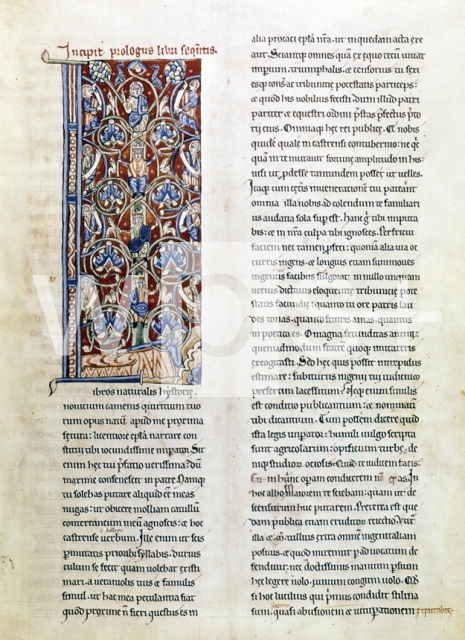 Incipit prologus libri seqntis.
ibros naturalis hystorie
novicium camenis quiritium tuo
rum opus natū apud me proxima
fetura: licentiore epła narrare con
stitui tibi iocundissime impator. Sit
enim hec tui p̄fatio verissima: dum
maxime consenescit in patre. Namq;
tu solebas putare aliquid eē meas
nugas: ut obicere moliar catullū
conterraneum meū agnoscis: et hoc
castrense verbum. Ille enim ut scis
pmutatis priorib; sillabis: durius
culum se fecit quam volebat existi
mari: a tuis et famulis
simul. ut hac mea petulantia fiat
quod proxime n̄ fieri questus es in
alia procaci epła nr̄a. ut in quedam acta exe
ant. Sciantq; omnes quā ex equo tecū vivat
imperium. triumphalis. et censorius tu
esq; et tribunitie potestatis particeps:
et quod his nobilius fecisti dum illud patri
pariter et equestri ordini p̄stas p̄fectus p̄to
rij eius. Omniaq; hec rei publice. Et nobis
quidē qualis in castrensi contubernio: ne q̄c
quā in te mutavit fortune amplitudo in his:
nisi ut pdesse tantundem posses ut velles.
Itaq; cum ceteris in veneratione tui pateant
omnia illa nobis ad colendum te familiari
us audatia sola sup est. hanc g tibi imputa
bis: et in nr̄a culpa tibi ignosces. Perfricui
faciem nec tamen pfeci: quoniā alia via oc
curris ingens. et longius etiam summoves
ingenii facibus. fulgorat in nullo unquam
verius dictatus eloquentie, tribunitie potes
tatis facundie: quanto tu ore patris lau
des tonas. quanto fratris amas. quantus
in poetica es. O magna fecunditas animi:
quemadmodum fratrē quoq; imitareris
excogitasti. Sed hec quis possit intrepidus
estimare: subiturus ingenij tui iudiciū
presertim lacessitum? Neq; enim similis
est conditio publicantium: et nominatī
tibi dicantium. Cum possem dicere quid
ista legis impator: humili vulgo scripta
sunt agricolarum: opificum turbe. de
niq; studior otiosis. Quid te iudicem facis:
Cum hanc opam condicerem non eras in
hoc albo. Maiorem te sciebam: quam ut de
scensurum huc putarem. Preterea est que
dam publica etiam eruditor reiectio. Utit
illa et m tullius extra omnē ingenii aliam
positus. et quod miremur p advocatum de
fenditur: nec doctissimis manium psium
hec legere nolo. iunium congum volo. Qđ
si hoc lucilius qui primus condidit stili na
sum. quasi abusionem et vituperationem